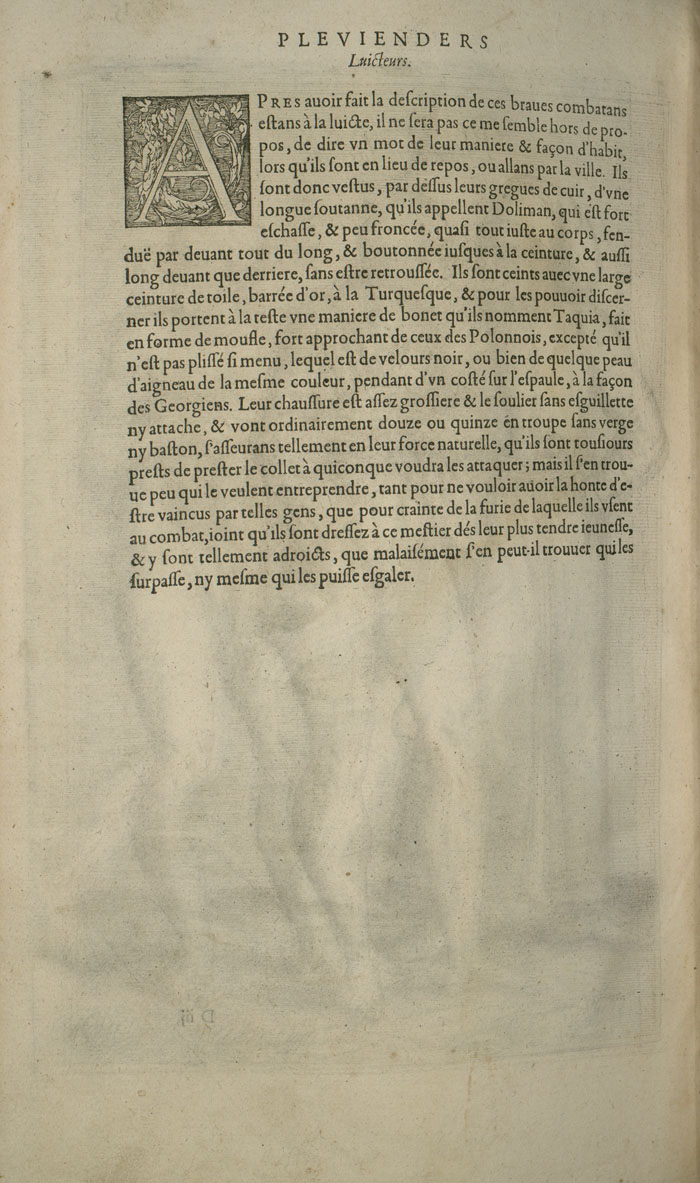 PLEVIENDERS
Luicteurs.
APRES auoir fait la deſcription de ces braues combatans
eſtans à la luicte, il ne ſera pas ce me ſemble hors de pro-
pos, de dire vn mot de leur maniere & façon d'habit,
lors qu'ils ſont en lieu de repos, ou allans par la ville. Ils
ſont donc veſtus, par deſſus leurs gregues de cuir, d'vne
longue ſoutanne, qu'ils appellent Doliman, qui eſt fort
eſchaſſe, & peu froncée, quaſi tout iuſte au corps, fen-
duë par deuant tout du long, & boutonnée iuſques à la ceinture, & auſſi
long deuant que derriere, ſans eſtre retrouſſée. Ils ſont ceints auec vne large
ceinture de toile, barrée d'or, à la Turqueſque, & pour les pouuoir diſcer-
ner ils portent à la teſte vne maniere de bonet qu'ils nomment Taquia, fait
en forme de moufle, fort approchant de ceux des Polonnois, excepté qu'il
n'eſt pas pliſſé ſi menu, lequel eſt de velours noir, ou bien de quelque peau
d'aigneau de la meſme couleur, pendant d'vn coſté ſur l'eſpaule, à la façon
des Georgiens. Leur chauſſure eſt aſſez groſſiere & le ſoulier ſans eſguillette
ny attache, & vont ordinairement douze ou quinze en troupe ſans verge
ny baſton, ſ'aſſeurans tellement en leur force naturelle, qu'ils ſont touſiours
preſts de preſter le collet à quiconque voudra les attaquer; mais il ſ'en trou-
ue peu qui le veulent entreprendre, tant pour ne vouloir auoir la honte d'e-
ſtre vaincus par telles gens, que pour crainte de la furie de laquelle ils vſent
au combat, ioint qu'ils ſont dreſſez à ce meſtier dés leur plus tendre ieuneſſe,
& y ſont tellement adroicts, que malaiſément ſ'en peut-il trouuer qui les
ſurpaſſe, ny meſme qui les puiſſe eſgaler.
D iij